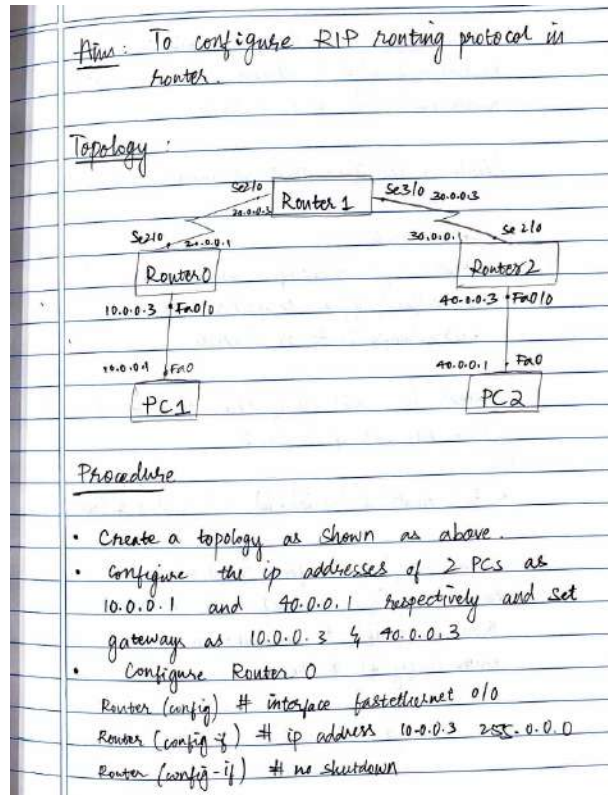 Aim: To configure RIP routing protocol in
router.
Topology :
Se2/0 Router 1 Se3/0 30.0.0.3
20.0.0.3
Se2/0 20.0.0.1 30.0.0.1 Se 2/0
Router 0 Router 2
10.0.0.3 Fa0/0 40.0.0.3 Fa0/0
10.0.0.1 Fa0 40.0.0.1 Fa0
PC1 PC2
Procedure
• Create a topology as shown as above.
• Configure the ip addresses of 2 PCs as
10.0.0.1 and 40.0.0.1 respectively and set
gateways as 10.0.0.3 & 40.0.0.3
• Configure Router 0
Router (config) # interface fastethernet 0/0
Router (config-if) # ip address 10.0.0.3 255.0.0.0
Router (config-if) # no shutdown